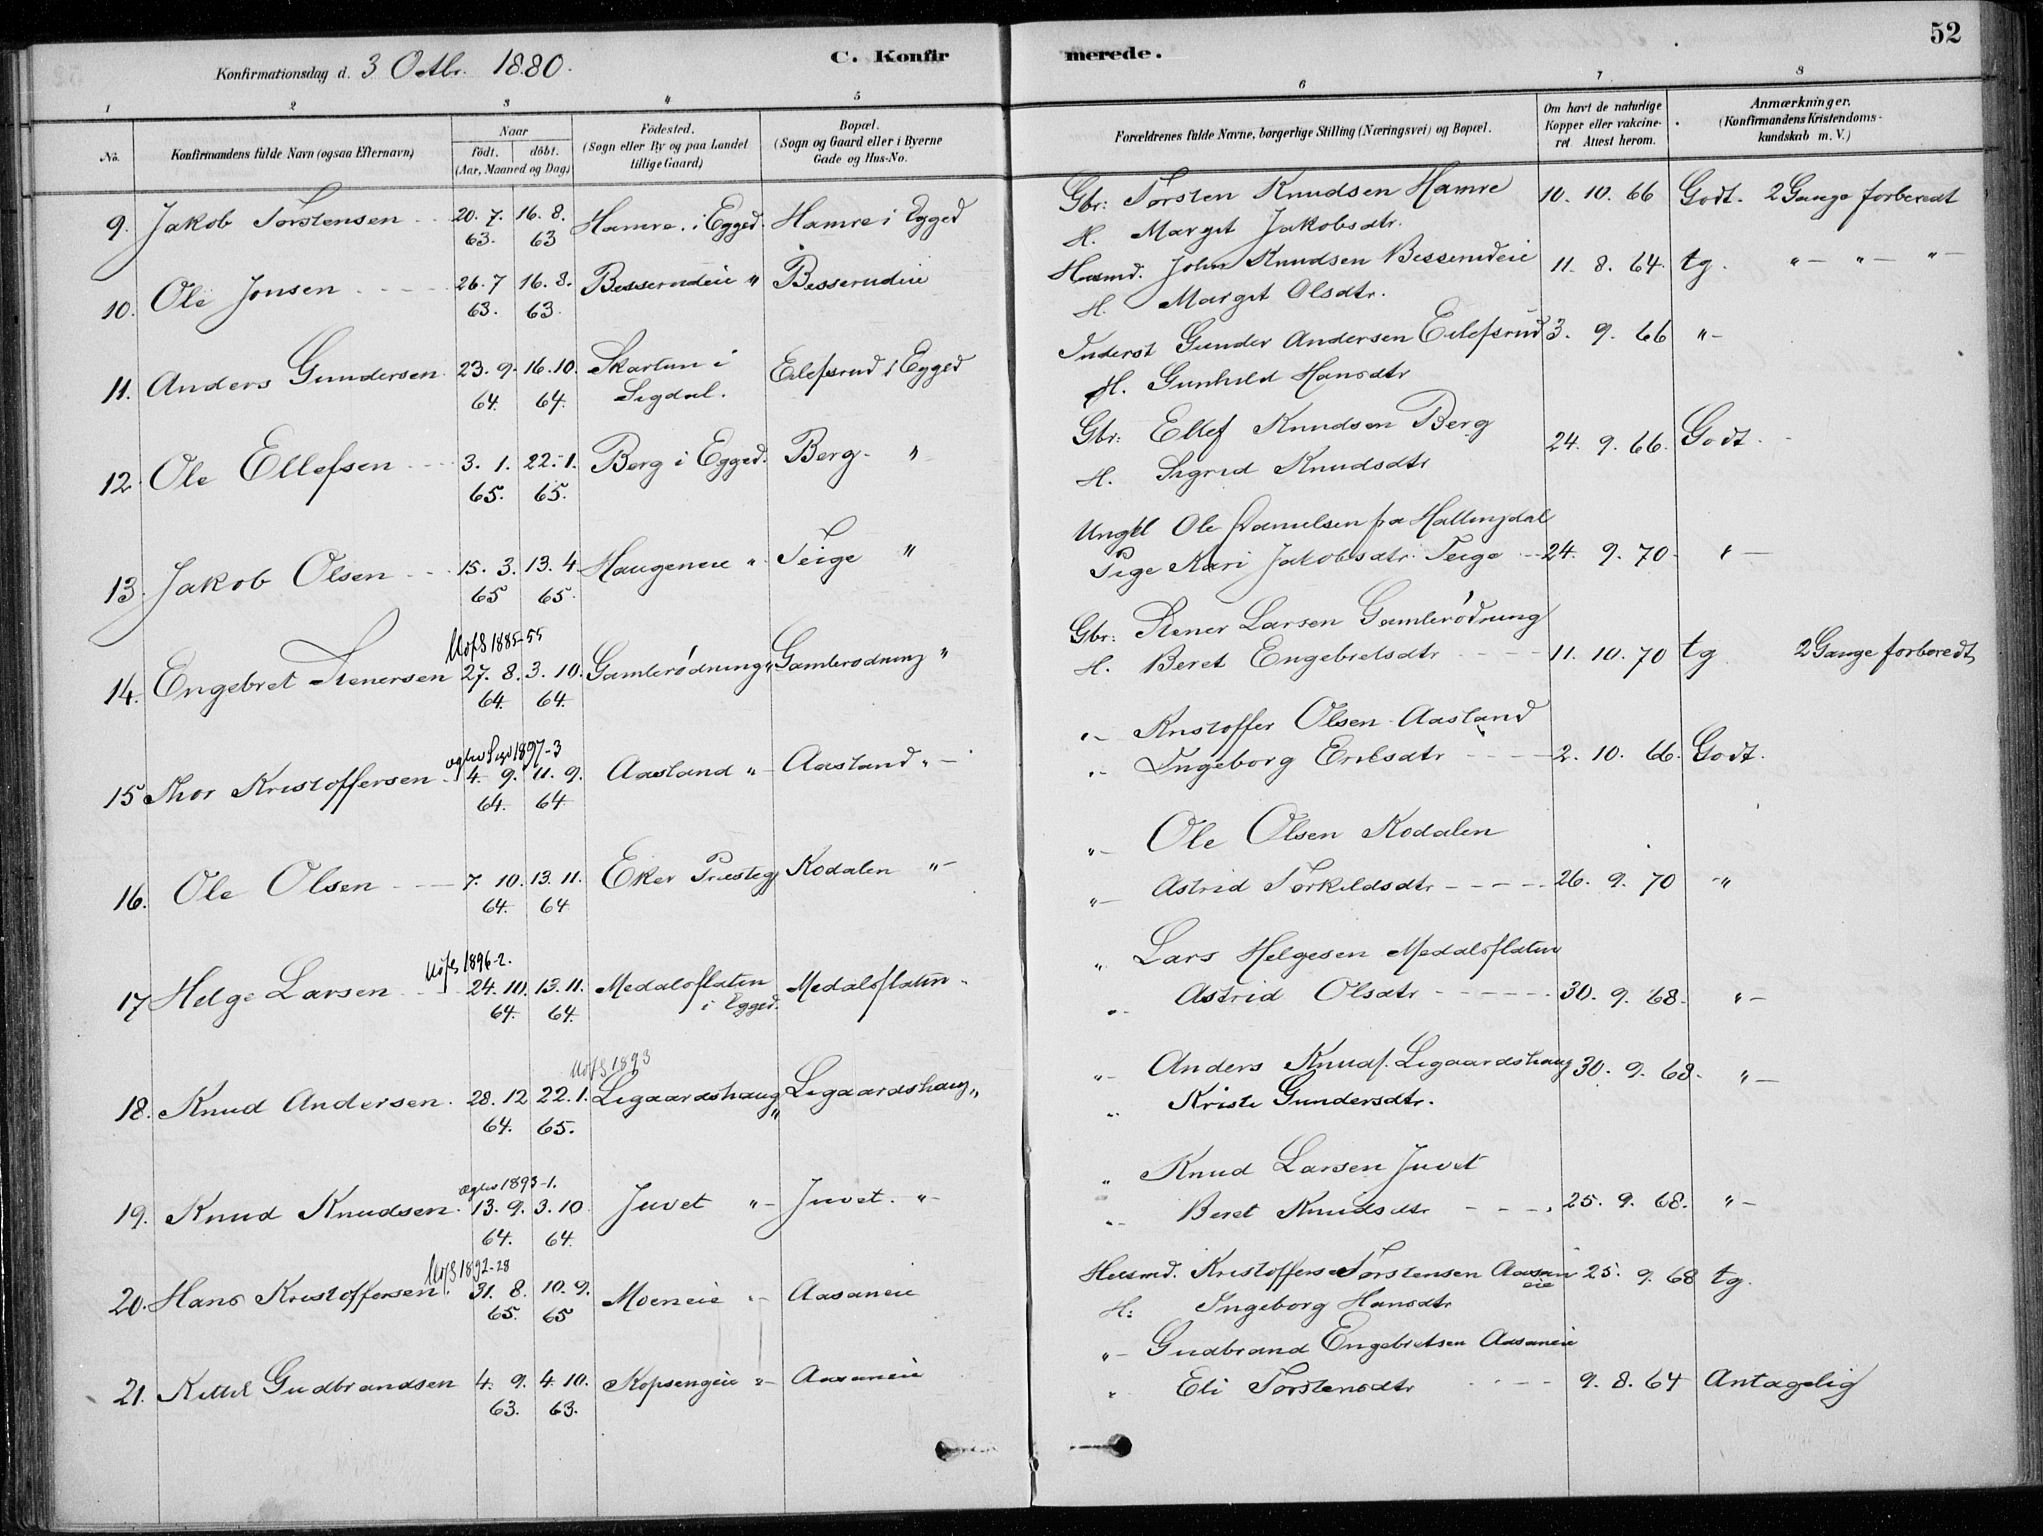 52
Konfirmationsdag d. 3 Octbr. 1880.
C. Konfirmerede.
1 2 3 4 5 6 7 8
No.
Konfirmandens fulde Navn (ogsaa Efternavn)
Naar
födt. döbt.
(Aar, Maaned og Dag)
Födested.
(Sogn eller By og paa Landet
tillige Gaard)
Bopæl.
(Sogn og Gaard eller i Byerne
Gade og Hus-No.
Forældrenes fulde Navne, borgerlige Stilling (Næringsvei) og Bopæl.
Om havt de naturlige
Kopper eller vakcine-
ret Attest herom.
Anmærkninger.
(Konfirmandens Kristendoms-
kundskab m. V.)
9. Jakob Torstensen 20. 7. 16. 8. Hamre i Egged. Hamre i Egged Gbr: Torsten Knudsen Hamre 10. 10. 66 Godt. 2 Gange forberedt
63. 63 H. Margit Jakobsdtr.
10. Ole Jonsen 26. 7 16. 8. Besserudeie " Besserudeie Husmd. John Knudsen Besserudeie 11. 8. 64. tg. " - " - " -
63. 63. H. Margit Olsdtr.
11. Anders Gundersen 23. 9. 16. 10. Skartum i Eilefsrud i Egged Inderst Gunder Andersen Eilefsrud 3. 9. 66 " -
64. 64. Sigdal. H. Gunhild Hansdtr
12. Ole Ellefsen 3. 1. 22. 1. Berg i Egged. Berg " Gbr: Ellef Knudsen Berg 24. 9. 66. Godt.
65. 65. H. Sigrid Knudsdtr
13. Jakob Olsen 15. 3. 13. 4. Haugeneie " Teige " Ungkl Ole Danielsen fra Hallingdal
65 65. Pige Kari Jakobsdtr. Teige 24. 9. 70 " -
Uofs 1885-55
14. Engebret Stenersen 27. 8. 3. 10. Gamlerødning " Gamlerødning " Gbr: Stener Larsen Gamlerødning
64. 64. H. Beret Engebretsdtr 11. 10. 70 tg 2 Gange forberedt
1897-3
15 Thor Kristoffersen 4. 9. 11. 9. Aasland " Aasland " - " - Kristoffer Olsen Aasland
64. 64 " - Ingeborg Eriksdtr 2. 10. 66. Godt.
16. Ole Olsen 7. 10. 13. 11. Eker Præsteg. Kodalen " - " - Ole Olsen Kodalen
64. 64 " - Astrid Torkildsdtr 26. 9. 70 - "
Uofs 1896-2.
17 Helge Larsen 24. 10. 13. 11. Medalsflaten Medalsflaten " Lars Helgesen Medalsflaten
64. 64. i Egged. " - Astrid Olsdtr 30. 9. 68. " -
Uofs 1893
18. Knud Andersen 28. 12 22. 1. Ligaardshaug " Ligaardshaug " " - Anders Knuds. Ligaardshaug 30. 9. 68. " -
64. 65. " - Kristi Gundersdtr.
1893-1.
19. Knud Knudsen 13. 9. 3. 10 Juvet " - Juvet. " - " Knud Larsen Juvet
64. 64. " - Beret Knudsdtr 25. 9. 68. " -
Uofs 1892-28
20. Hans Kristoffersen 31. 8. 10. 9. Moeneie " - Aasaneie Husmd. Kristoffersen Torstensen Aasan 25. 9. 68 tg.
eie
65. 65 H: Ingeborg Hansdtr
21. Kittil Gudbrandsen 4. 9. 4. 10. Kopsengeie " - Aasaneie " - Gudbrand Engebretsen Aasaneie
63. 63. " Eli Torstensdtr 9. 8. 64 Antagelig